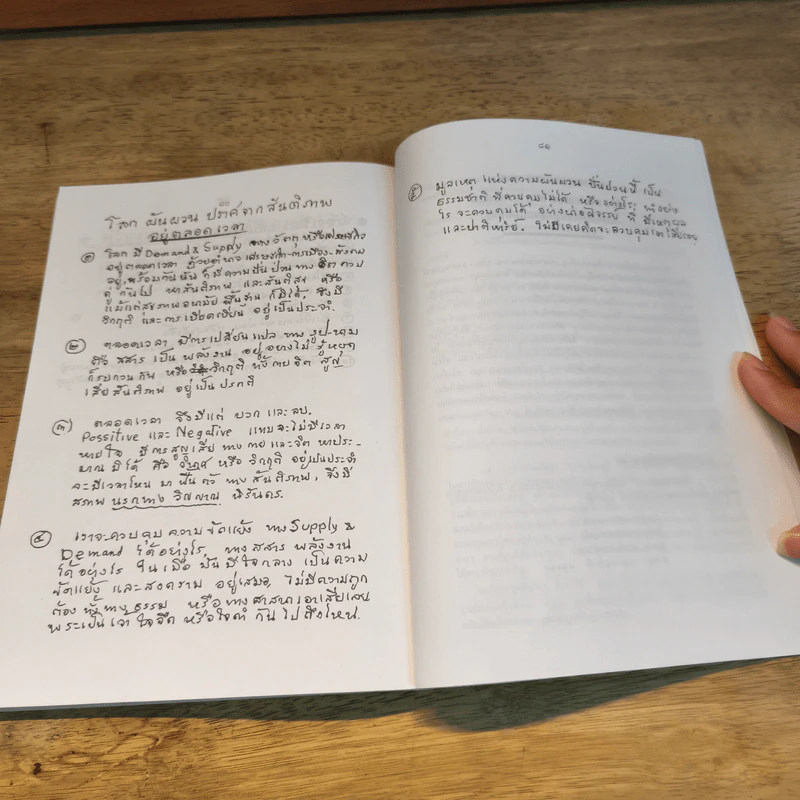 ๘๐
โลก ผันผวน ปราศจากสันติภาพ
อยู่ตลอดเวลา
๑ โลก มี Demand & Supply ทางวัตถุ หรือ
อยู่ตลอดเวลา ด้วยอำนาจเศรษฐกิจ-การเมือง-สังคม
อยู่, พร้อมกันนั้น ก็มีความปั่นป่วน ทางจิต ควบ
คู่ กันไป หาสันติภาพ และสันติสุข หรือ
แม้แต่สุขภาพอนามัย พื้นฐาน ก็มิได้, จึงมี
วิกฤติ และการเบียดเบียน อยู่เป็นประจำ.
๒ ตลอดเวลา มีการเปลี่ยนแปลง ทาง รูป-นาม
คือ สสาร เป็น พลังงาน อยู่ อย่างไม่ รู้หยุด
ก็รบกวนกัน หรือ วิกฤติ ทั้งกายจิต สูญ
เสียสันติภาพ อยู่เป็นปรกติ
๓ ตลอดเวลา จึงมีแต่ บวก และ ลบ.
Possitive และ Negative แทบจะไม่มีเวลา
หายใจ มีการสูญเสีย ทางกายและจิต หาประ-
มาณมิได้ คือ วินาศ หรือ วิกฤติ อยู่เป็นประจำ
จะมีเวลาไหน มาฟื้นตัว ทางสันติภาพ, จึงมี
สภาพ นรกทางวิญญาณ นิรันดร.
๔ เราจะควบคุมความขัดแย้ง ทาง Supply &
Demand ได้อย่างไร, ทางสสาร พลังงาน
ได้อย่างไร ในเมื่อ มันมีใจกลาง เป็นความ
ขัดแย้ง และสงคราม อยู่เสมอ, ไม่มีความถูก
ต้อง ทั้งทางธรรม หรือทางศาสนาเอาเสียเลย
พระเป็นเจ้า ใจจืด หรือใจดำ กันไปถึงไหน.
๘๑
๕ มูลเหตุ แห่งความผันผวน ปั่นป่วนนี้ เป็น
ธรรมชาติ ที่ควบคุมไม่ได้ หรืออย่างไร; ทำอย่าง
ไร จะควบคุมได้ อย่างน่าอัศจรรย์ ที่ มีเหตุผล
และปาฏิหาริย์. ไม่มีใครคิดจะควบคุมเอาเสียเลย